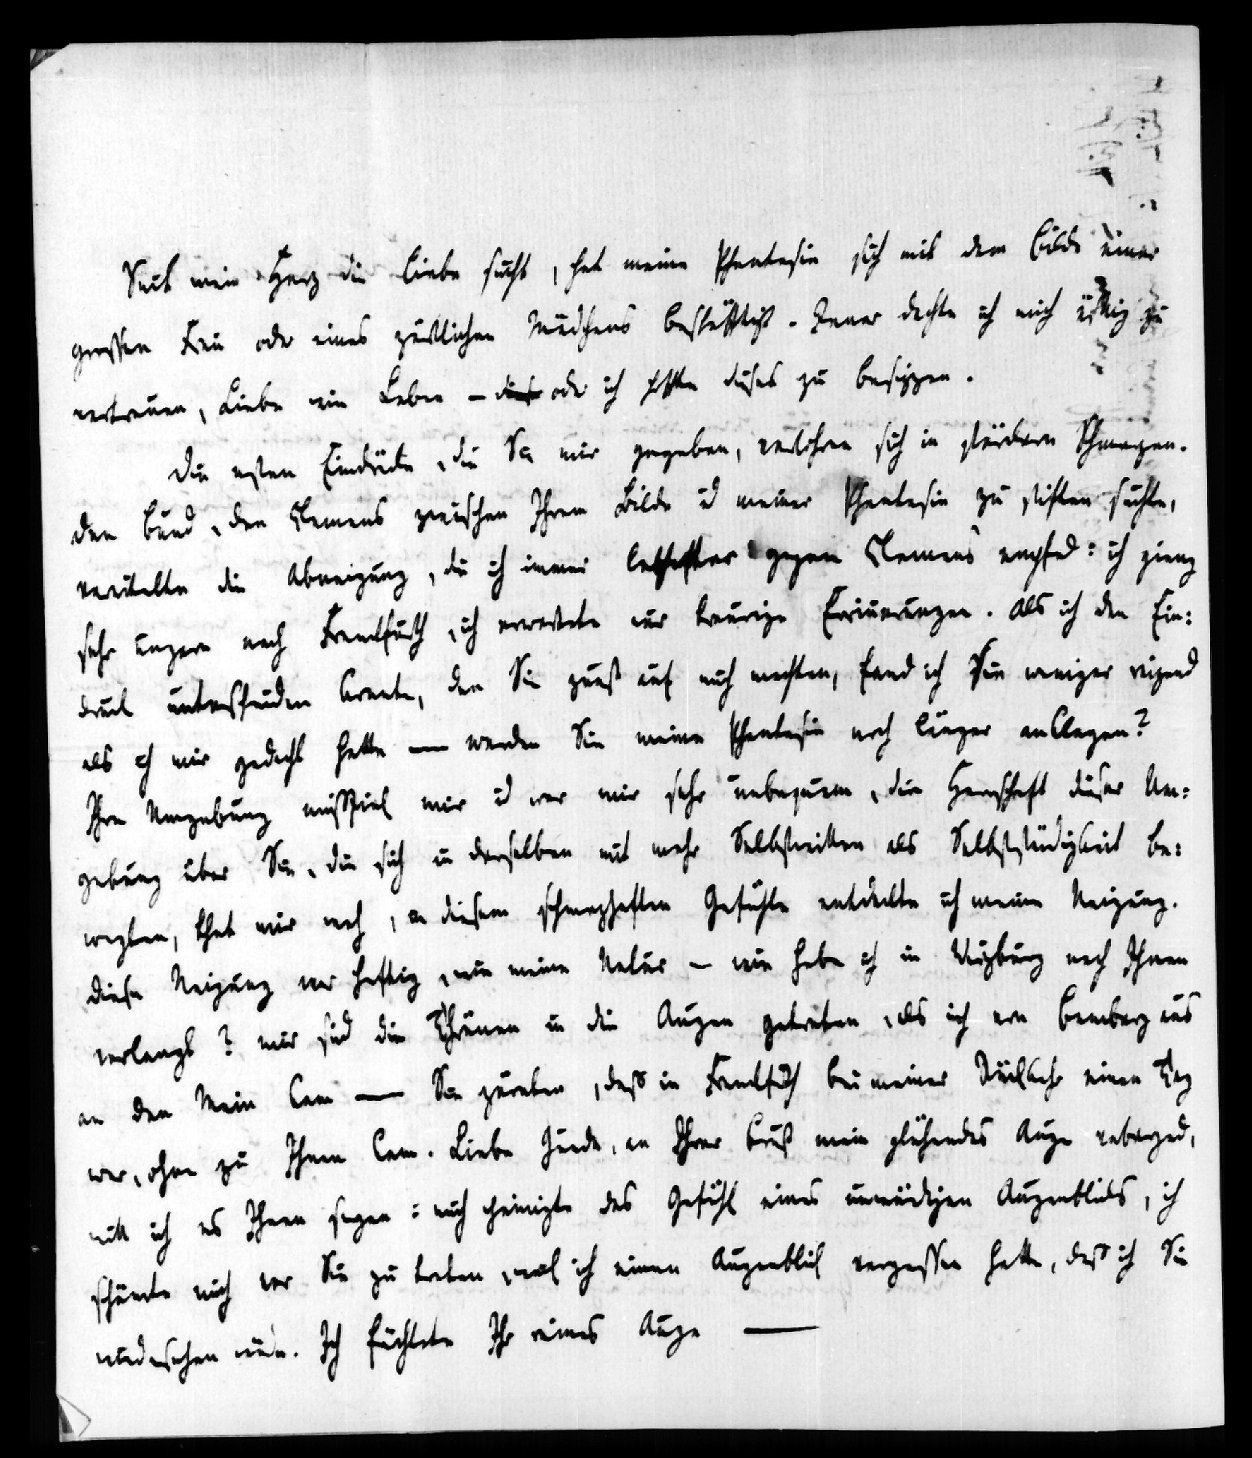 Seit mein Herz die Liebe sucht, hat meine Phantasie sich mit dem Bilde einer
grossen Frau oder eines zärtlichen Mädchens beschäfftigt. Jener dachte ich mich zu
vertrauen, Liebe ein Leben — oder ich hoffte dieses zu besizzen.
Die ersten Eindrücke, die Sie mir gegeben, verlohren sich in Schmerzen.
Den Bund, den Clemens zwischen Ihrem Bilde u meiner Phantasie zu stiften suchte,
vereitelte die Abneigung, die ich immer lebhafter gegen Clemens empfand: ich gieng
sehr ungern nach Frankfurth, ich erwartete nur traurige Erinnerungen. Als ich den Ein:
druck unterscheiden konnte, den Sie zuerst auf mich machten, fand ich Sie weniger reizend
als ich mir gedacht hatte — werden Sie meine Phantasie noch länger anklagen?
Ihre Umgebung misfiel mir u war mir sehr unbequem, die Herrschaft dieser Um:
gebung über Sie, die sich in derselben mit mehr Selbstvertrauen als Selbstständigkeit be:
wegten, that mir weh, in diesem schmerzhaften Gefühle entdeckte ich meine Neigung.
Diese Neigung war heftig, wie meine Natur — wie habe ich in Würzburg nach Ihnen
verlangt? mir sind die Thränen in die Augen getreten, als ich von Bamberg aus
an den Main kam — Sie zürnten, dass in Frankfurth bei meiner Rückkehr einen Tag
war, ohne zu Ihnen kam. Liebe Gunda, an Ihrer Brust mein glühendes Auge verbergend,
will ich es Ihnen sagen: mich peinigte das Gefühl eines unwürdigen Augenblicks, ich
schämte mich vor Sie zu treten, weil ich einen Augenblick vergessen hatte, dass ich Sie
wiedersehen würde. Ich fürchtete Ihr reines Auge —